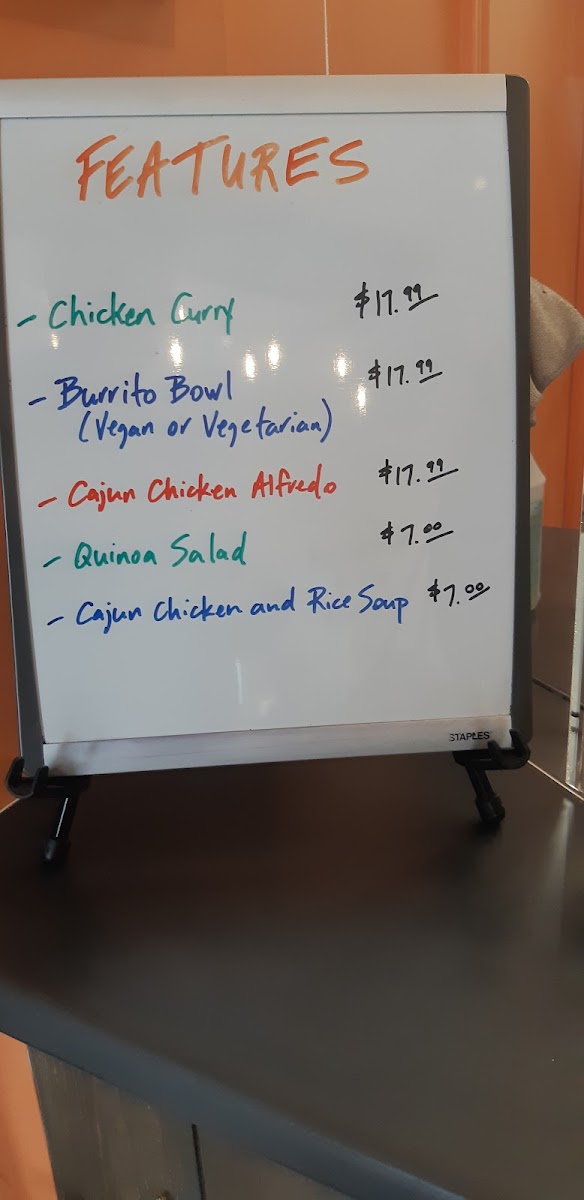 FEATURES
- Chicken Curry $17.99
- Burrito Bowl $17.99
(Vegan or Vegetarian)
- Cajun Chicken Alfredo $17.99
- Quinoa Salad $7.00
- Cajun Chicken and Rice Soup $7.00
STAPLES